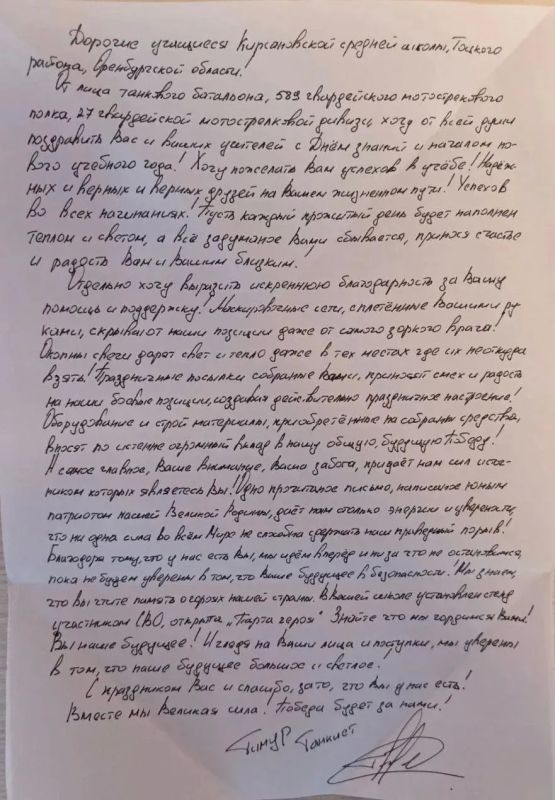 Дорогие учащиеся Кирсановской средней школы, Тоцкого
района, Оренбургской области!
От лица танкового батальона, 589 гвардейского мотострелкового
полка, 27 гвардейской мотострелковой дивизи, хочу от всей души
поздравить Вас и ваших учителей с Днём знаний и началом но-
вого учебного года! Хочу пожелать Вам успехов в учёбе! Надёж-
ных и верных и верных друзей на Вашем жизненном пути! Успехов
во всех начинаниях! Пусть каждый прожитый день будет наполнен
теплом и светом, а всё задуманое Вами сбывается, принося счастье
и радость Вам и Вашим близким!
Отдельно хочу выразить искреннюю благодарность за Вашу
помощь и поддержку! Маскировочные сети, сплетённые Вашими ру
ками, скрывают наши позиции даже от самого зоркого врага!
Окопные свечи дарят свет и тепло даже в тех местах где их неоткуда
взять! Праздничные посылки собранные Вами, приносят смех и радость
на наши боевые позиции, создавая действительно праздничное настроение!
Оборудование и строй материалы, приобретённые на собраны средства,
вносят по истенне огромный вклад в нашу общую, будущую Победу!
А самое главное, Ваше внимание, Ваша забота, придаёт нам сил источ-
ником которых являетесь Вы! Одно прочитаное письмо, написаное юным
патриотом нашей Великой Родины, даёт нам столько энергии и уверености,
что ни одна сила во всём Мире не способна сдержать наш праведный порыв!
Благодоря тому, что у нас есть Вы, мы идём вперёд и ни за что не остановимся,
пока не будем уверены в том, что Ваше будущее в безопасности! Мы знаем,
что вы чтите память о героях нашей страны. В Вашей школе установлен стенд
участником СВО, открыта „Парта героя“ Знайте что мы гордимся Вами!
Вы наше будущее! И глядя на Ваши лица и поступки, мы уверены
в том, что наше будущее большое и светлое!
С праздником Вас и спасибо, за то, что Вы у нас есть!
Вместе мы Великая сила! Победа будет за нами!
Тимур Танкист